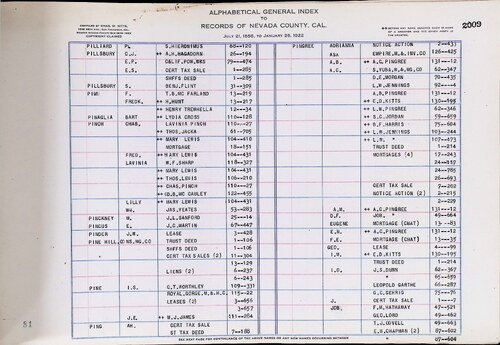 ALPHABETICAL GENERAL INDEX
TO
RECORDS OF NEVADA COUNTY, CAL.
JULY 21, 1856, TO JANUARY 26, 1922
COPYRIGHT CLAIMED
2009
PILLIARD P. S.HIERONIMUS 68—120
PILLSBURY C.J. ++ A.H.HAGADORN 26—194
E.F. CALIF.POW.WKS 79—474
E.S. CERT TAX SALE 1—285
SHFFS DEED 1—285
PILLSBURY S. BENJ.FLINT 31—309
PINE F. T.B.MC FARLAND 13—219
FREDK. ++ W.HUNT 13—217
++ HENRY TREMHELLA 12—34
PINAGLIA BART ++ LYDIA CROSS 110—128
PINCH CHAS. LAVINIA PINCH 110—27
++ THOS.JACKA 61—705
++ MARY LEWIS 104—410
MORTGAGE 18—151
FRED. ++ MARY LEWIS 104—431
LAVINIA ++ W.F.SHARP 118—327
++ MARY LEWIS 104—431
++ THOS.LEWIS 106—210
++ CHAS.PINCH 110—27
++ D.B.MC CAULEY 122—455
LILLY ++ MARY LEWIS 104—431
WM. JAS.YEATES 53—283
PINCKNEY M. J.L.SANFORD 25—14
PINCUS E. J.C.MARTIN 67—447
PINDER J.W. LEASE 3—428
PINE HILL,CONS.MG.CO TRUST DEED 1—106
SHFFS DEED 1—106
CERT TAX SALES (2) 11—304
13—129
LIENS (2) 6—237
6—243
PINE I.S. C.T.NORTHLEY 109—331
ROYAL,GORGE,M.& M.C. 115—22
LEASES (2) 3—656
3—657
J.E. ++ W.J.JAMES 111—284
PING AH. CERT TAX SALE
ST TAX DEED 7—188
81
PINGREE ADRIANNA NOTICE ACTION 2—433
ASA EMPIRE,M.& INV.CO 126—425
A.B. ++ A.C.PINGREE 131—12
A.C. S.YUBA,M.& MG.CO 62—347
D.E.MORGAN 70—435
L.W.JENNINGS 92—4
A.B.PINGREE 131—12
++ E.D.KITTS 130—195
++ L.W.PINGREE 62—346
++ S.C.JORDAN 59—659
++ S.F.HARRIS 75—604
++ L.W.JENNINGS 103—244
++ L.W. " 107—473
TRUST DEED 1—214
MORTGAGES (4) 17—243
24—217
24—785
26—693
CERT TAX SALE 7—202
NOTICE ACTION (2) 2—215
2—229
A.W. ++ A.C.PINGREE 131—12
D.F. JOB. " 49—664
EUGENE MORTGAGE (CHAT) 13—83
E.H. ++ A.C.PINGREE 131—12
F.E. MORTGAGE (CHAT) 13—35
GEO. LEASE 4—99
I.W. ++ E.D.KITTS 130—195
TRUST DEED 1—214
I.O. J.S.DUNN 62—367
" 65—659
LEOPOLD GARTHE 66—287
S.C.GEHRIG 75—76
J. CERT TAX SALE 1—7
JOB. F.M.HATHAWAY 47—521
GEO.LORD 49—662
T.J.ODVELL 49—663
E.R.CHAPMAN (2) 87—602
87—604